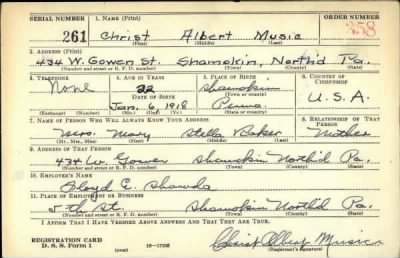 SERIAL NUMBER 1. NAME (Print) ORDER NUMBER
261 Christ Albert Music 258
(First) (Middle) (Last)
2. ADDRESS (Print)
434 W. Gowen St. Shamokin, North'd Pa.
(Number and street or R. F. D. number) (Town) (County) (State)
3. TELEPHONE 4. AGE IN YEARS 5. PLACE OF BIRTH 6. COUNTRY OF CITIZENSHIP
None 22 Shamokin
DATE OF BIRTH (Town or county)
Jan. 6, 1918 Penna. U.S.A.
(Exchange) (Number) (Mo.) (Day) (Yr.) (State or country)
7. NAME OF PERSON WHO WILL ALWAYS KNOW YOUR ADDRESS 8. RELATIONSHIP OF THAT PERSON
Mrs. Mary Stella Baker Mother
(Mr., Mrs., Miss) (First) (Middle) (Last)
9. ADDRESS OF THAT PERSON
434 W. Gowen Shamokin North'd Pa.
(Number and street or R. F. D. number) (Town) (County) (State)
10. EMPLOYER'S NAME
Floyd E.
11. PLACE OF EMPLOYMENT OR BUSINESS
5th St. Shamokin North'd Pa.
(Number and street or R. F. D. number) (Town) (County) (State)
I AFFIRM THAT I HAVE VERIFIED ABOVE ANSWERS AND THAT THEY ARE TRUE.
REGISTRATION CARD
D. S. S. Form 1 (over) Christ Albert Music
(Registrant's signature)